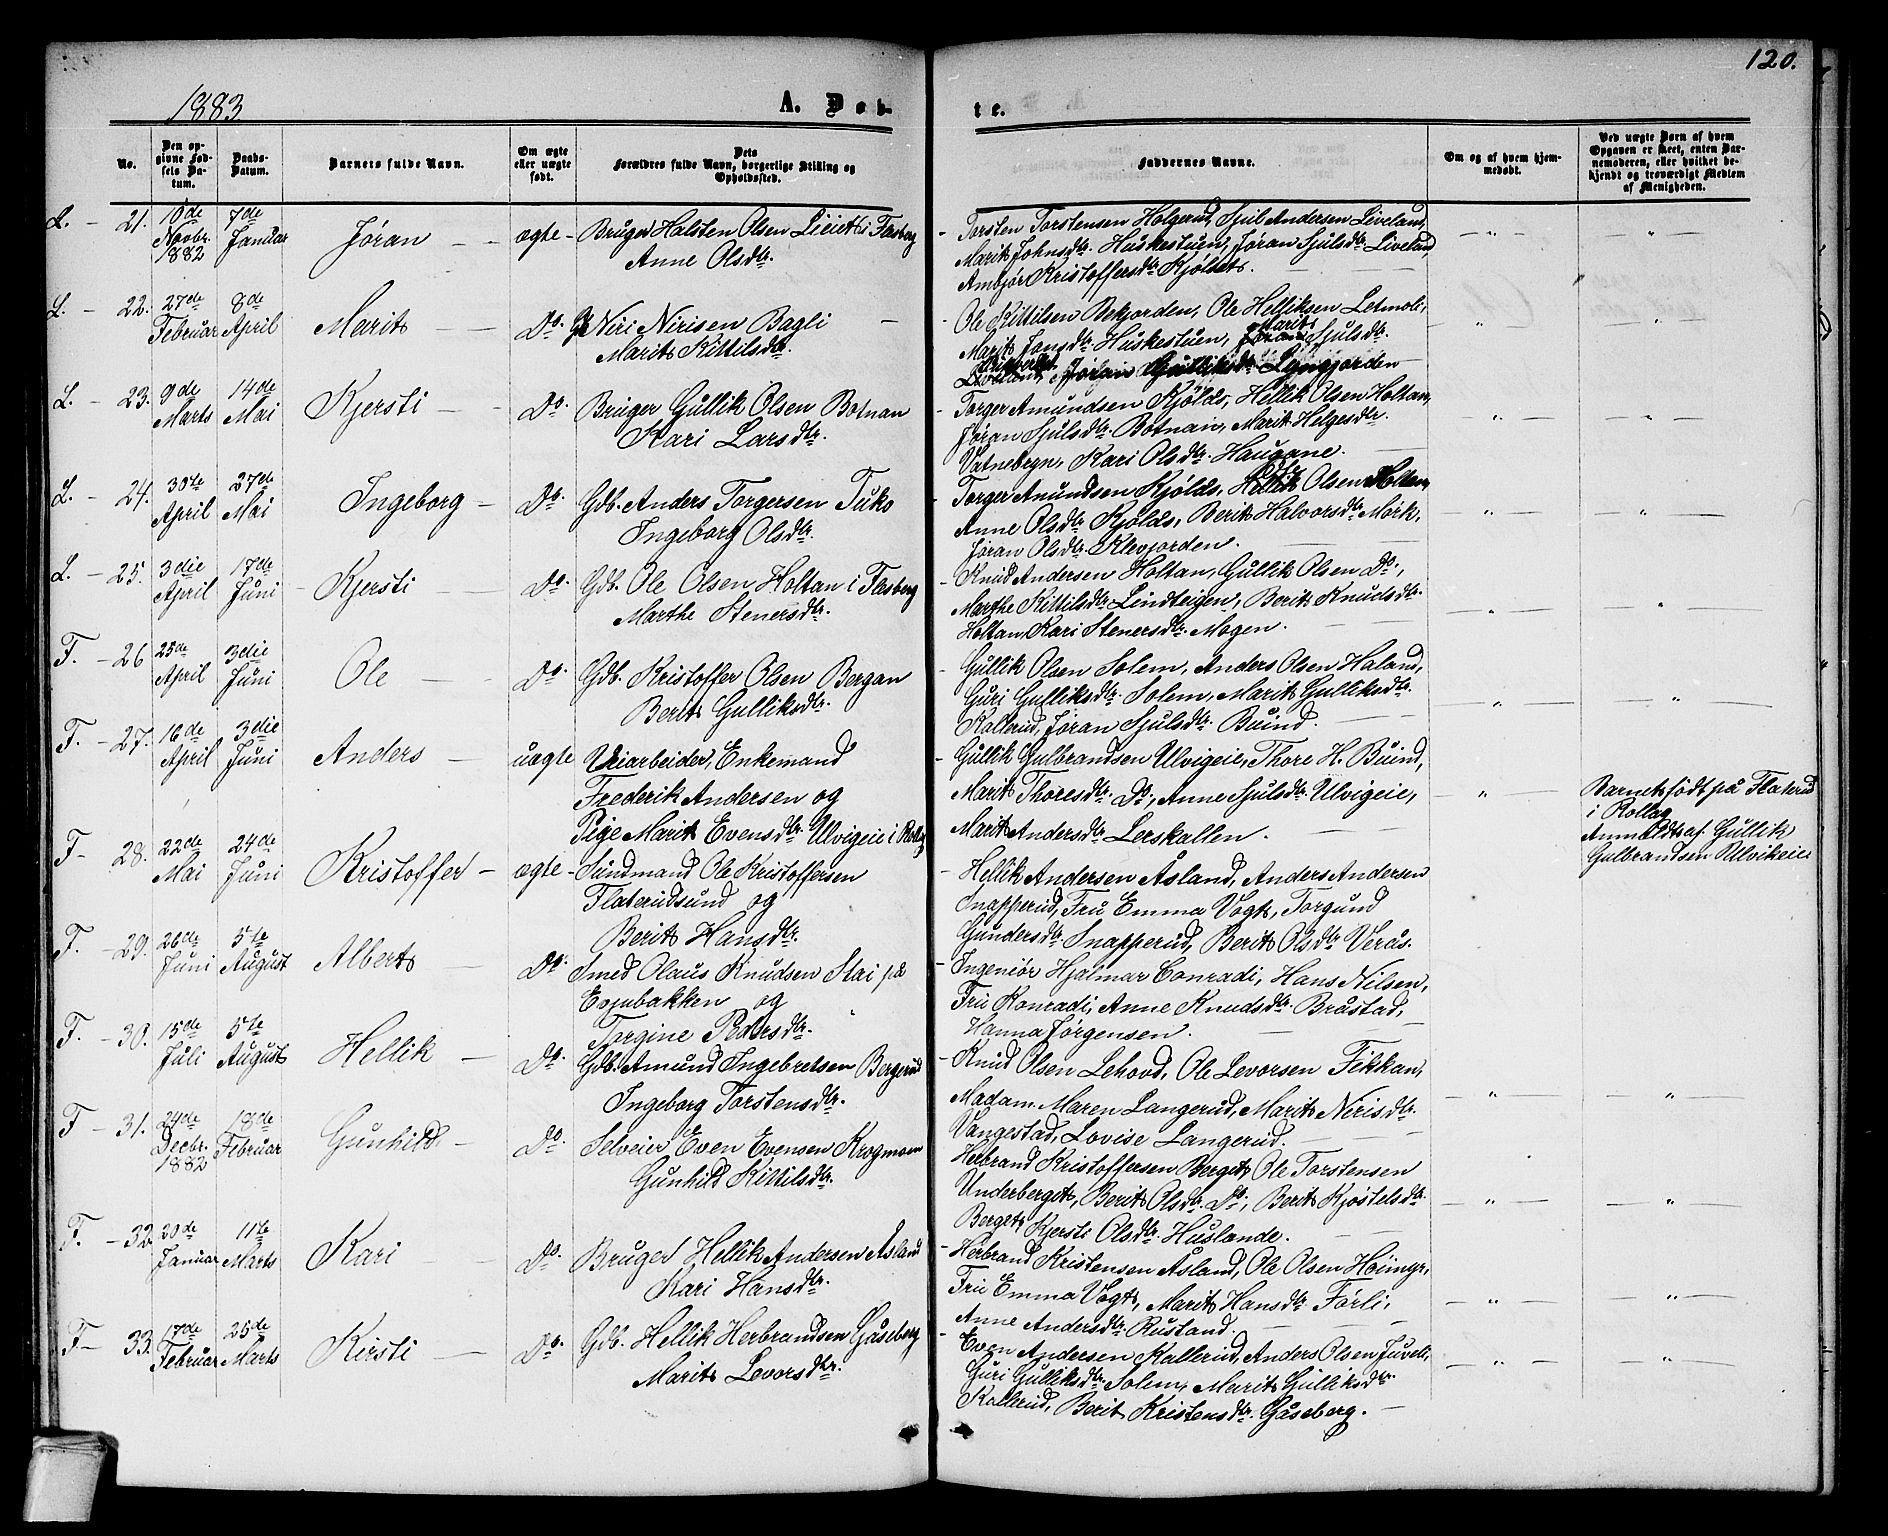 120.
1883
A. Døb- te.
No.
Den opgivne Fødsels Datum.
Daabs-Datum.
Barnets fulde Navn.
Om ægte eller uægte født.
Dets Forældres fulde Navn, borgerlige Stilling og Opholdssted.
Faddernes Navne.
Om og af hvem hjemmedøbt.
Ved uægte Børn af hvem Opgaven er skeet, enten Barnemoderen, eller hvilket bekjendt og troværdigt Medlem af Menigheden.
L. – 21. 10de Novbr. 1882 7de Januar Jøran – ægte –
Bruger Halsten Olsen i Flesberg
Anne Olsdtr.
Torsten Torstensen Holgerud, Sjul Andersen Liveland,
Marit Johnsdtr. Huskestuen, Jøran Sjulsdtr. Liveland,
Ambjør Kristoffersdtr. Kjølset.
L. – 22. 27de Februar 8de April Marit – Do.
Niri Nirisen Bagli
Marit Kittilsdtr.
Ole Kittilsen Bekjorden, Ole Helliksen Letmoli,
Marit Jansdtr. Huskestuen, Marit Sjulsdtr.
Jøran Gulliksdtr. Lyngjorden
L. – 23. 9de Marts 14de Mai Kjersti – Do.
Bruger Gullik Olsen Botnan
Kari Larsdtr.
Torger Amundsen Kjølds, Hellik Olsen Holtan,
Jøran Sjulsdtr. Botnan, Marit Helgesdtr.
Vatnebryn, Kari Olsdtr. Haugane.
L. – 24. 30te April 27de Mai Ingeborg – Do.
Gdb. Anders Torgersen Tuko
Ingeborg Olsdtr.
Torger Amundsen Kjølds, Olsen Holtan,
Anne Olsdtr. Kjølds, Berit Halvorsdtr. Mørk,
Jøran Olsdtr. Klevjorden.
L. – 25. 3die April 17de Juni – Kjersti – Do.
Gdb. Ole Olsen Holtan i Flesberg
Marthe Stenersdtr.
Knud Andersen Holtan, Gullik Olsen Do.,
Marthe Kittilsdtr. Lindteigen, Berit Knudsdtr.
Holtan, Kari Stenersdtr. Mogen.
F. – 26 25de April 3die Juni Ole – Do.
Gdb. Kristoffer Olsen Bergan
Berit Gulliksdtr.
Gullik Olsen Solem, Anders Olsen Haland,
Guri Gulliksdtr. Solem, Marit Gulliksdtr.
Kallerud, Jøran Sjulsdtr. Buind.
F. – 27. 16de April 3die Juni Anders – uægte
Veiarbeider, Enkemand
Frederik Andersen og
Pige Marit Evensdtr. Ulvigeie i Rollag
Gullik Gulbrandsen Ulvigeie, Thore H. Buind,
Marit Thoresdtr. Do., Anne Sjulsdtr. Ulvigeie,
Marit Andersdtr. Lerskallen.
Barnet født på Flaterud
i Rollag
Anmeldt af Gullik
Gulbrandsen Ulvikeie
F – 28. 22de Mai 24de Juni Kristoffer – ægte –
Sundmand Ole Kristoffersen
Flaterudsund og
Berit Hansdtr.
Hellik Andersen Åsland, Anders Andersen
Snapperud, Fru Emma Vogt, Torgund
Gundersdtr. Snapperud, Berit Olsdtr. Verås.
F. – 29. 26de Juni 5te August Albert – Do.
Smed Olaus Knudsen Stai på
Evjubakken og
Torgine Pedersdtr.
Ingeniør Hjalmar Conradi, Hans Nilsen,
Fru Konradi, Anne Knudsdtr. Bråstad,
Hanna Jørgensen.
F – 30. 15de Juli 5te August Hellik – Do.
Gdb. Amund Ingebretsen Bergerud
Ingeborg Torstensdtr.
Knud Olsen Lehovd, Ole Levorsen Fekkan,
Madam Maren Langerud, Marit Nerisdtr.
Vangestad, Lovise Langerud.
F – 31. 24de Decbr. 1882 18de Februar Gunhild – Do.
Selveier Even Evensen Krogmoen
Gunhild Kittilsdtr.
Herbrand Kristoffersen Berget, Ole Torstensen
Underberget, Berit Olsdtr. Do., Berit Kjøstelsdtr.
Berget, Kjersti Olsdtr. Huslande.
F. – 32. 20de Januar 11te Marts Kari – Do.
Bruger Hellik Andersen Åsland
Kari Hansdtr.
Herbrand Kristensen Åsland, Ole Olsen Høimyr,
Fru Emma Vogt, Marit Hansdtr. Førli,
Anne Andersdtr. Rustand.
F – 33. 17de Februar 25de Marts Kirsti – Do.
Gdb. Hellik Herbrandsen Gåseberg
Marit Levorsdtr.
Even Andersen Kallerud, Anders Olsen Juveli,
Guri Gulliksdtr. Solem, Marit Gulliksdtr.
Kallerud, Berit Kristensdtr. Gåseberg.